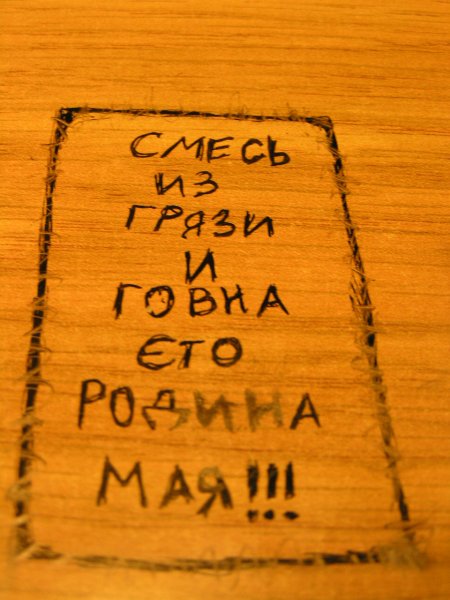 СМЕСЬ
ИЗ
ГРЯЗИ
И
ГОВНА
ЄТО
РОДИНА
МАЯ!!!